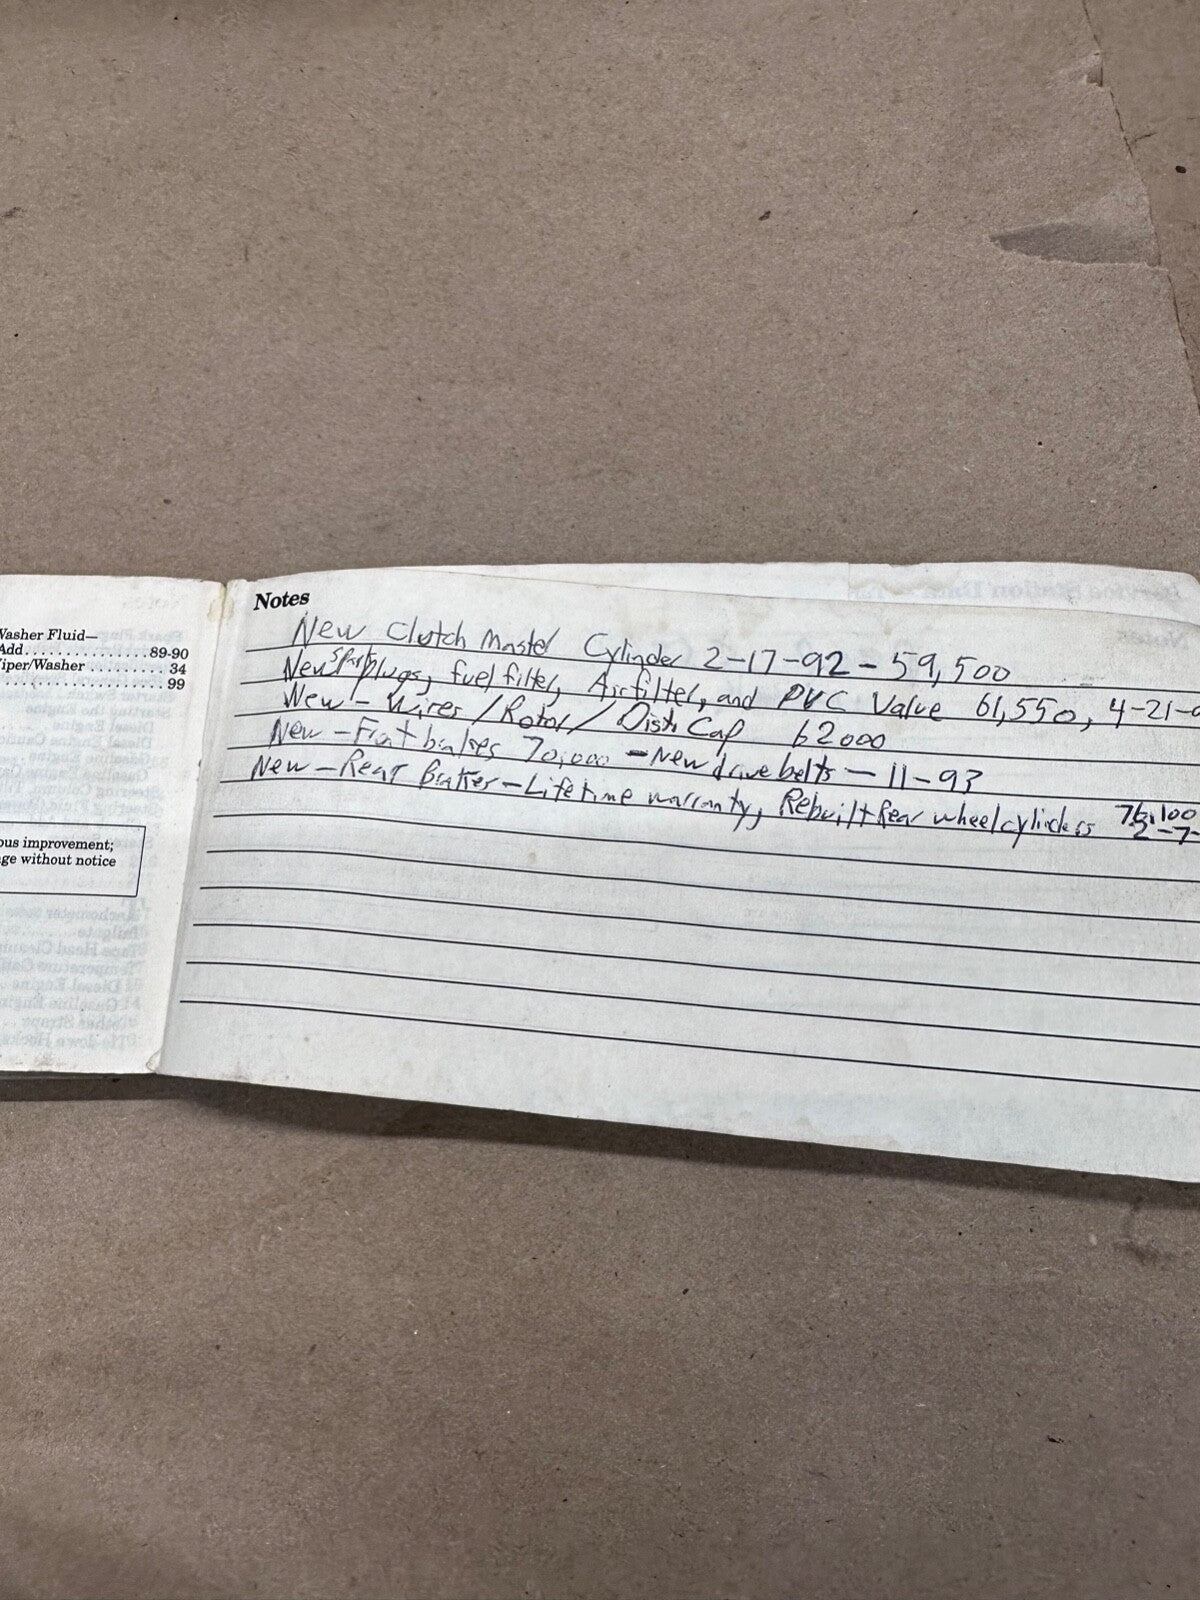 Washer Fluid—
Add...............89-90
Wiper/Washer.........34
....................99
ous improvement;
ge without notice
Notes
New Clutch Master Cylinder 2-17-92 - 59,500
New spark plugs, fuel filter, Air filter, and PVC Value 61,550, 4-21-9
New - Wires / Rotor / Distr Cap 62000
New - Front brakes 70,000 - New drive belts - 11-93
New - Rear Brakes - Lifetime warranty, Rebuilt Rear wheel cylinders 76,100
2-7-